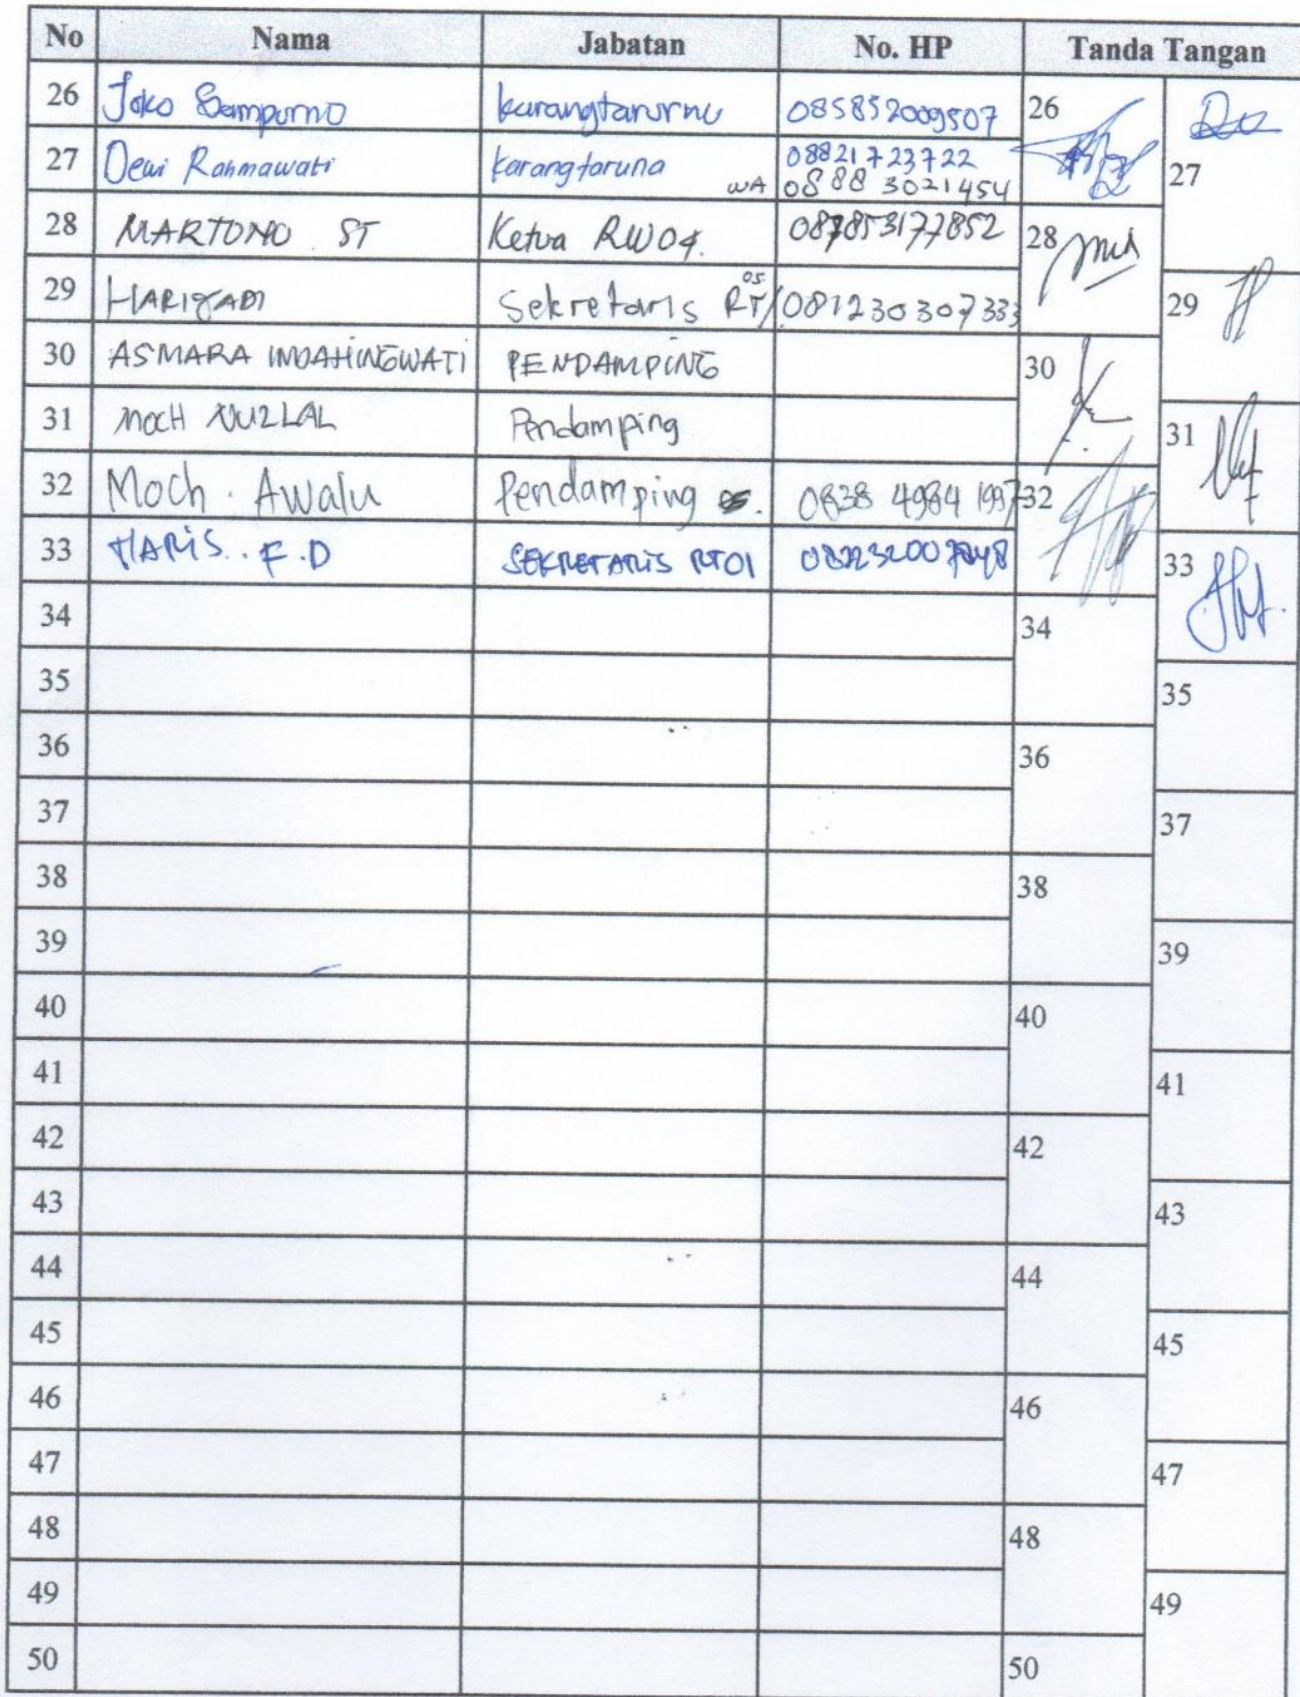 No Nama Jabatan No. HP Tanda Tangan
26 Joko Sampurno karangtarurnu 085852009507 26
27 Dewi Rahmawati karangtaruna 08821723722 27
WA 0888 3021454
28 MARTONO ST Ketua RW04. 087853177852 28
29 HARIYADI Sekretaris RT/05 081230307333 29
30 ASMARA INDAHINGWATI PENDAMPING 30
31 MOCH NUZLAL Pendamping 31
32 Moch. Awalu Pendamping 0838 4984 1997 32
33 HARIS. F.D SEKRETARIS RT01 33
34 34
35 35
36 36
37 37
38 38
39 39
40 40
41 41
42 42
43 43
44 44
45 45
46 46
47 47
48 48
49 49
50 50